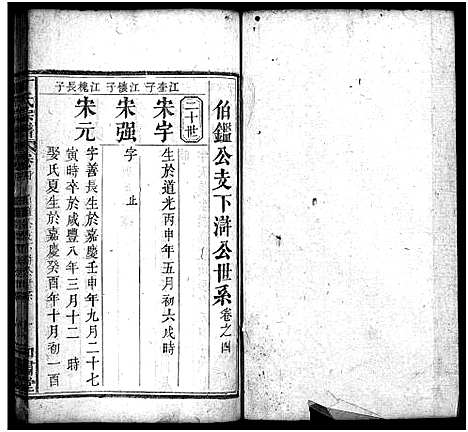 伯鑑公支下滸公世系 卷之四
二十世
江奎子
宋字
生於道光丙申年五月初六戌時
江懐子
宋强
字
止
江槐長子
宋元
字善長生於嘉慶壬申年九月二十七
寅時卒於咸豐八年三月十二 時
娶氏夏生於嘉慶癸酉年十月初一酉